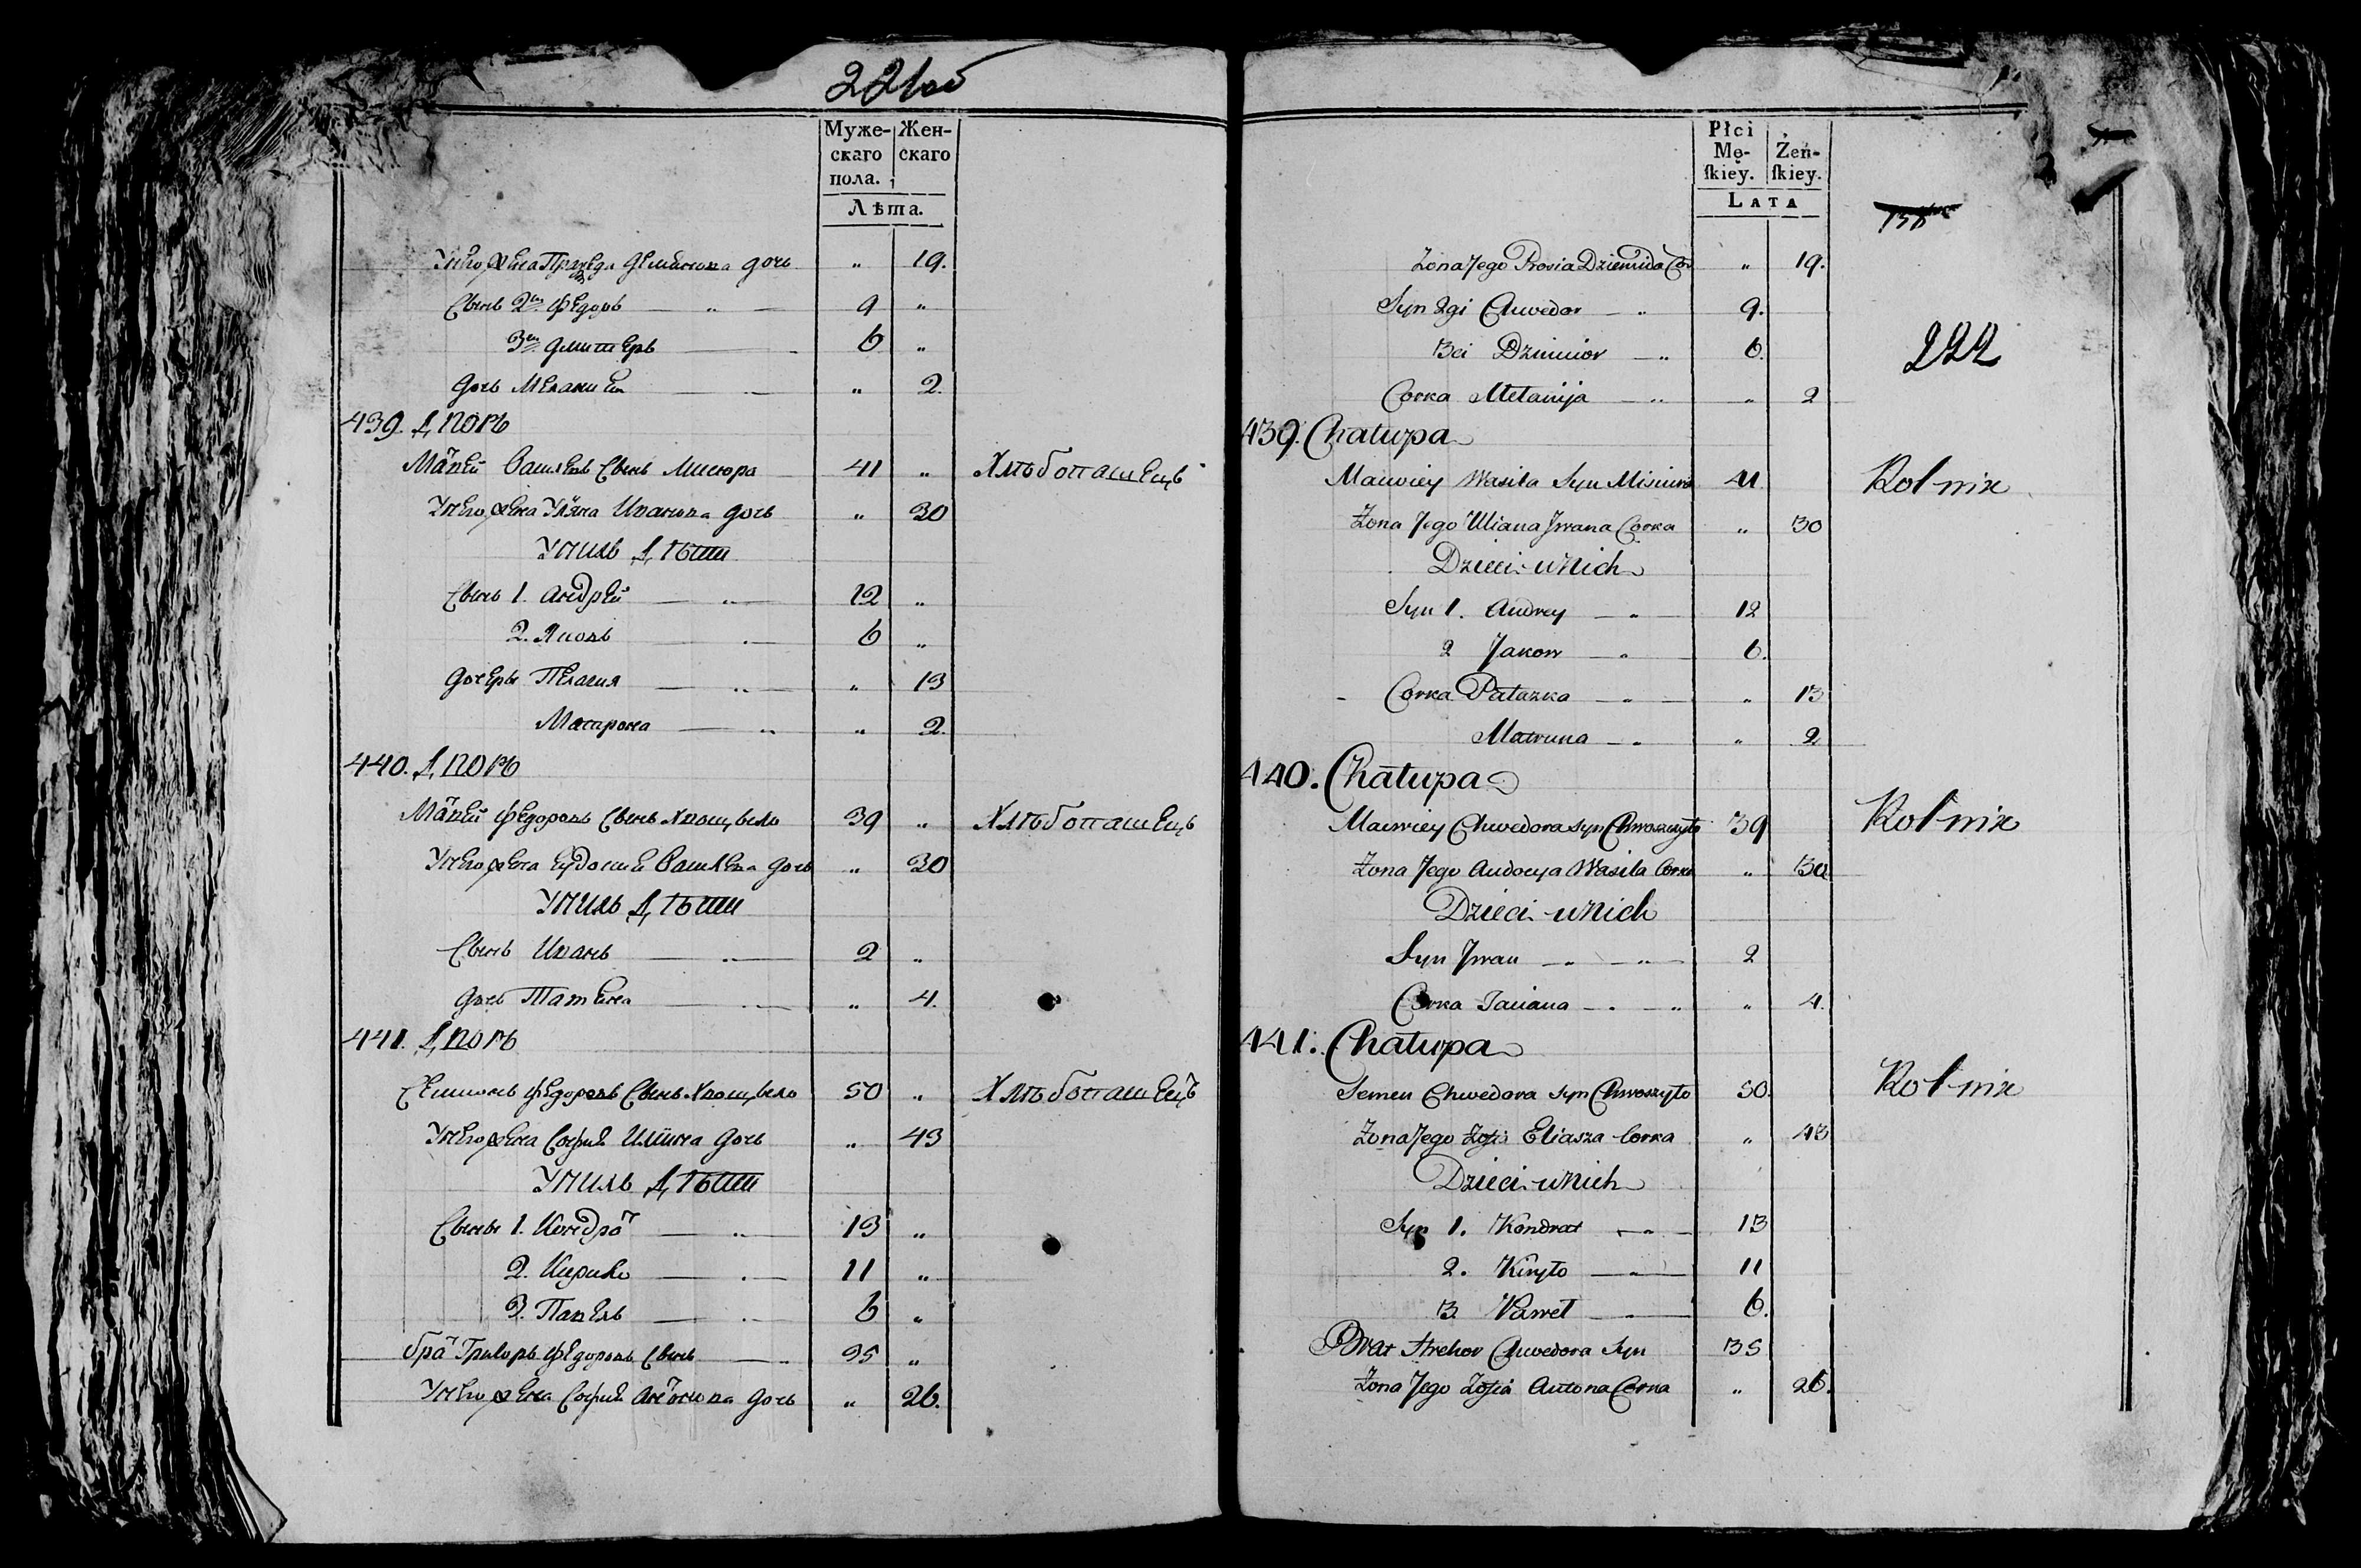 221об
Муже-скаго пола. Жен-скаго
Лѣта.
У него жена Праxеда Демидова дочь " 19.
Сынъ 2й Федоръ " 9 "
3й Дмитеръ 6 "
Дочь Мелания " 2.
439. Дворъ
Матвей Василевъ Сынъ Мисюра 41 " Хлѣбопашецъ
У него жена Уляна Иванова дочь " 30
У нихъ Дѣти
Сынъ 1. Андрей " 12 "
2. Яковъ 6 "
Дочеры Пелагия " " 13
Матрона " " 2.
440. Дворъ
Матвей Федоровъ Сынъ Хвощыло 39 " Хлѣбопашецъ
У него жена Еудосия Василева дочь " 30
У нихъ Дѣти
Сынъ Иванъ " 2 "
Дочь Татьяна " 4.
441. Дворъ
Семионъ Федоровъ Сынъ Хвощыло 50 " Хлѣбопашецъ
У него жена София Илiина дочь " 43
У нихъ Дѣти
Сыны 1. Кондрат " 13 "
2. Кирило 11 "
3. Павелъ 6 "
брат Григоръ Федоровъ Сынъ " 35 "
У него жена София Антонова дочь " 26.
Płci Mę-skiey. Żeń-skiey.
Lata
222
Żona Jego Prosia Dziemida Cor " 19.
Syn 2gi Chwedor " 9.
3ci Dzimior " 6.
Corka Melanija " " 2
439. Chałupa
Maciwiey Wasila Syn Misiura 41 Rolnik
Żona Jego Uliana Jwana Corka " 30
Dzieci u Nich
Syn 1. Andrey " 12
2 Jakow " 6.
Corka Pałazka " " 13
Matruna " " 2
440. Chałupa
Maciwiey Chwedora Syn Chwoszczyło 39 Rolnik
Żona Jego Audocya Wasila Corka " 30
Dzieci u Nich
Syn Jwan " " 2
Corka Taciana " " " 4.
441. Chałupa
Semen Chwedora Syn Chwoszyło 50. Rolnik
Żona Jego Zofia Eliasza Corka " 43
Dzieci u Nich
Syn 1. Kondrat " 13
2. Kiryło " 11
3 Paweł " 6.
Brat Hrehor Chwedora Syn 35
Żona Jego Zofia Antona Corka " 26.